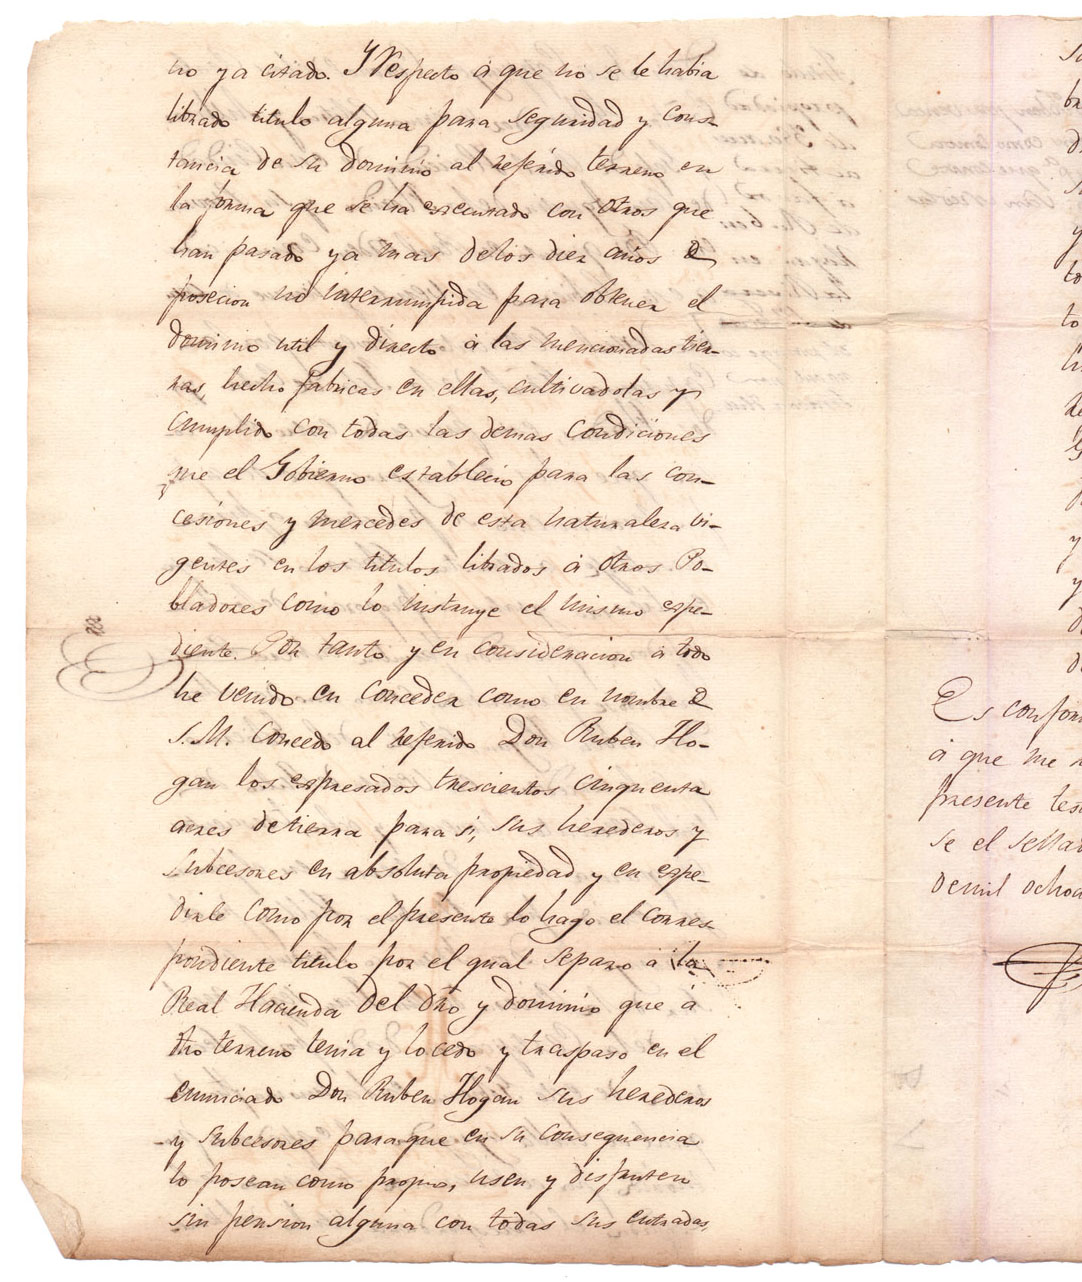 no ya citado. Y Respecto á que no se le habia
librado titulo alguna para seguridad y cons-
tancia de su dominio al referido terreno en
la forma que se ha executado con otros que
han pasado ya mas de los diez años de
posecion no interrumpida para obtener el
dominio util y directo á las mencionadas tier-
ras hecho fabricas en ellas, cultivadolas y
cumplido con todas las demas condiciones
que el Gobierno establecio para las con-
cesiones y mercedes de esta naturaleza vi-
gentes en los titulos librados á otros Po-
bladores como lo instruye el mismo espe-
diente. Por tanto y en consideracion á todo
he venido en conceder como en nombre de
S. M. Concedo al referido Don Ruben Ho-
gan los espresados trescientos cinquenta
acres de tierra para si, sus herederos y
subcesores en absoluta propiedad y en espe-
dirle como por el presente lo hago el corres-
pondiente titulo por el qual separo á la
Real Hacienda del dro y dominio que á
dho terreno tenia y lo cedo y traspaso en el
enunciado Don Ruben Hogan sus herederos
y subcesores para que en su consequencia
lo posean como propio, usen y disfruten
sin pension alguna con todas sus entradas,
Es confor
á que me
presente tes
se el sellad
de mil ochoc